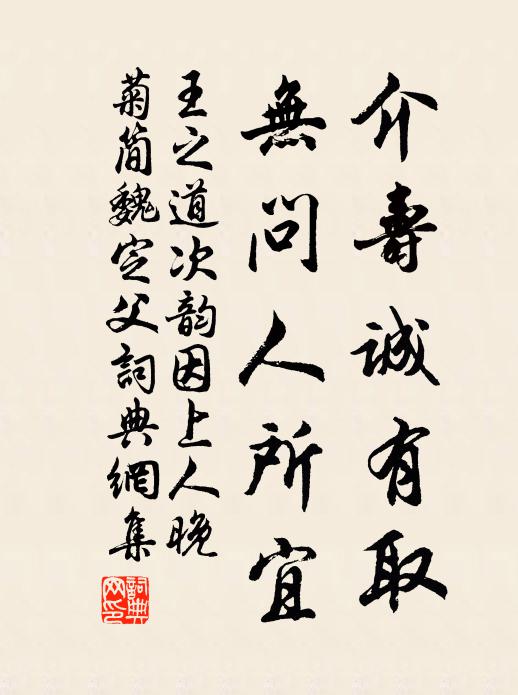 介壽誠有取
無問人所宜
王之道次韵因上人晚
菊簡魏定父詞典網集
詞典网印